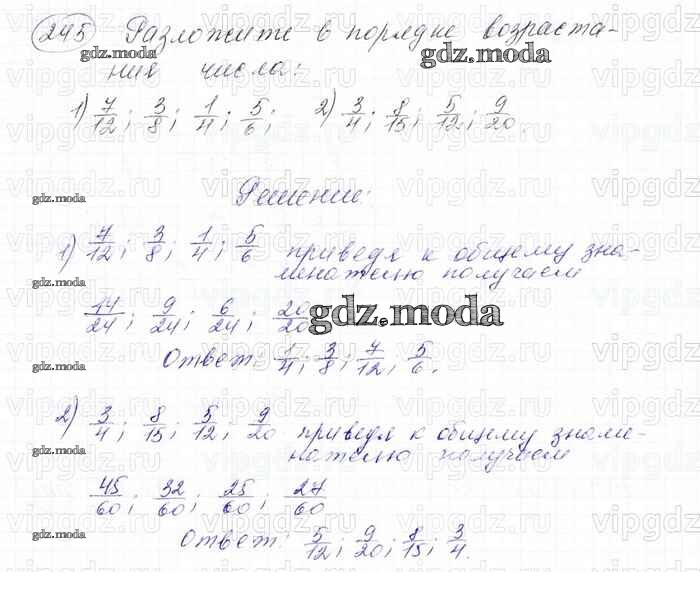 245 Разложите в порядке возраста-
ния числа:
1) 7/12; 3/8; 1/4; 5/6; 2) 3/4; 8/15; 5/12; 9/20.
Решение:
1) 7/12; 3/8; 1/4; 5/6 приведя к общему зна-
менателю получаем
14/24; 9/24; 6/24; 20/20
Ответ: 1/4; 3/8; 7/12; 5/6.
2) 3/4; 8/15; 5/12; 9/20 приведя к общему знаме-
нателю получаем
45/60; 32/60; 25/60; 27/60
Ответ: 5/12; 9/20; 8/15; 3/4.
gdz.moda
vipgdz.ru